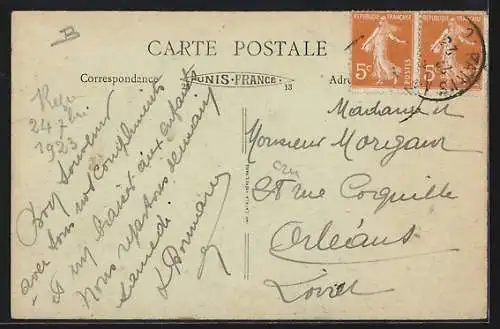 B
CARTE POSTALE
Correspondance
UNIS-FRANCE
13
Adr
REPUBLIQUE FRANÇAISE
5c
POSTES
REPUBLIQUE FRANÇAISE
5c
Reçu
24 7
1923
Bon Souvenir
avec tous nos Compliments
et mes baisers aux enfants
Nous repartons demain
samedi
Madame et
Monsieur Morigaux
28 rue Coquille
Orléans
Loiret